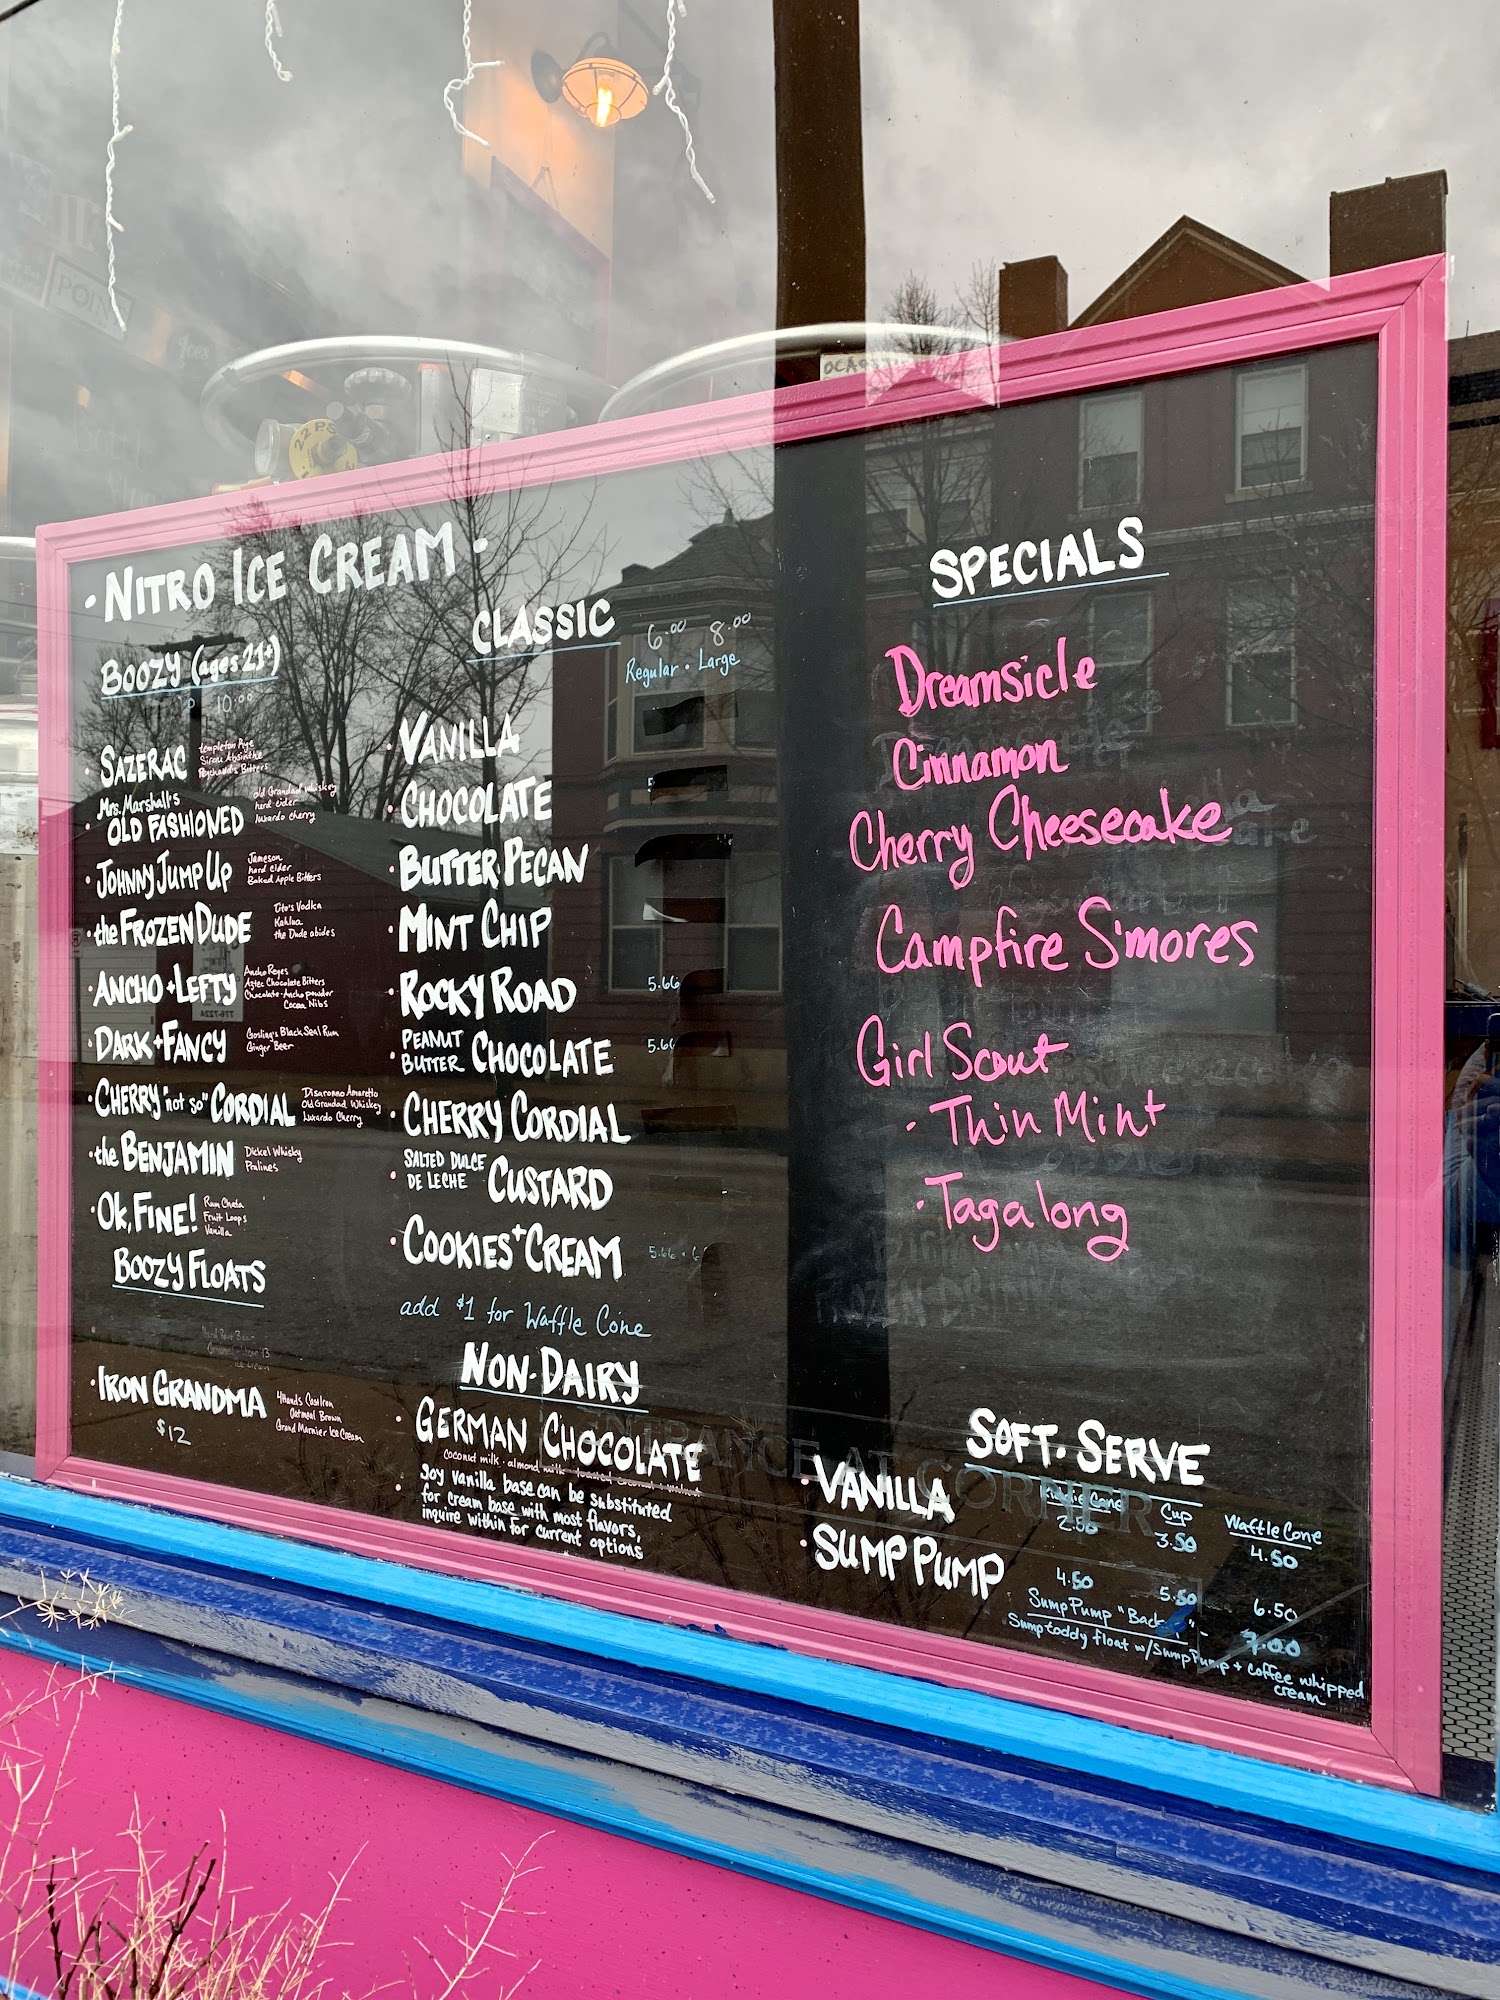 22 PSI
POINT
• NITRO ICE CREAM •
BOOZY (ages 21+)
10.00
• SAZERAC
templeton Rye
Sirene Absinthe
Peychaud's Bitters
Mrs. Marshall's
• OLD FASHIONED
old Grandad whiskey
hard cider
luxardo cherry
• JOHNNY JUMP UP
Jameson
hard cider
Baked Apple Bitters
• the FROZEN DUDE
Tito's Vodka
Kahlua
the Dude abides
• ANCHO + LEFTY
Ancho Reyes
Aztec Chocolate Bitters
Chocolate • Ancho powder
Cocoa Nibs
• DARK + FANCY
Gosling's Black Seal Rum
Ginger Beer
• CHERRY "not so" CORDIAL
Disaronno Amaretto
Old Grandad Whiskey
Luxardo Cherry
• the BENJAMIN
Dickel Whisky
Pralines
• OK, FINE!
Rum Chata
Fruit Loops
Vanilla
BOOZY FLOATS
• IRON GRANDMA
4Hands Cast Iron
Oatmeal Brown
Grand Marnier Ice Cream
$12
CLASSIC
6.00 8.00
Regular • Large
• VANILLA
• CHOCOLATE
• BUTTER PECAN
• MINT CHIP
• ROCKY ROAD 5.66
• PEANUT BUTTER CHOCOLATE 5.66
• CHERRY CORDIAL
• SALTED DULCE DE LECHE CUSTARD
• COOKIES + CREAM 5.66 • 6
add $1 for Waffle Cone
NON-DAIRY
• GERMAN CHOCOLATE
coconut milk • almond milk • toasted coconut + walnut
• Soy vanilla base can be substituted
for cream base with most flavors,
inquire within for current options
SPECIALS
Dreamsicle
Cinnamon
Cherry Cheesecake
Campfire S'mores
Girl Scout
• Thin Mint
• Tagalong
ENTRANCE AT CORNER
SOFT • SERVE
Cone Cup Waffle Cone
• VANILLA 2.50 3.50 4.50
• SUMP PUMP 4.50 5.50 6.50
Sump Pump "Back" 7.00
Sumptoddy float w/ Sump Pump + coffee whipped
cream